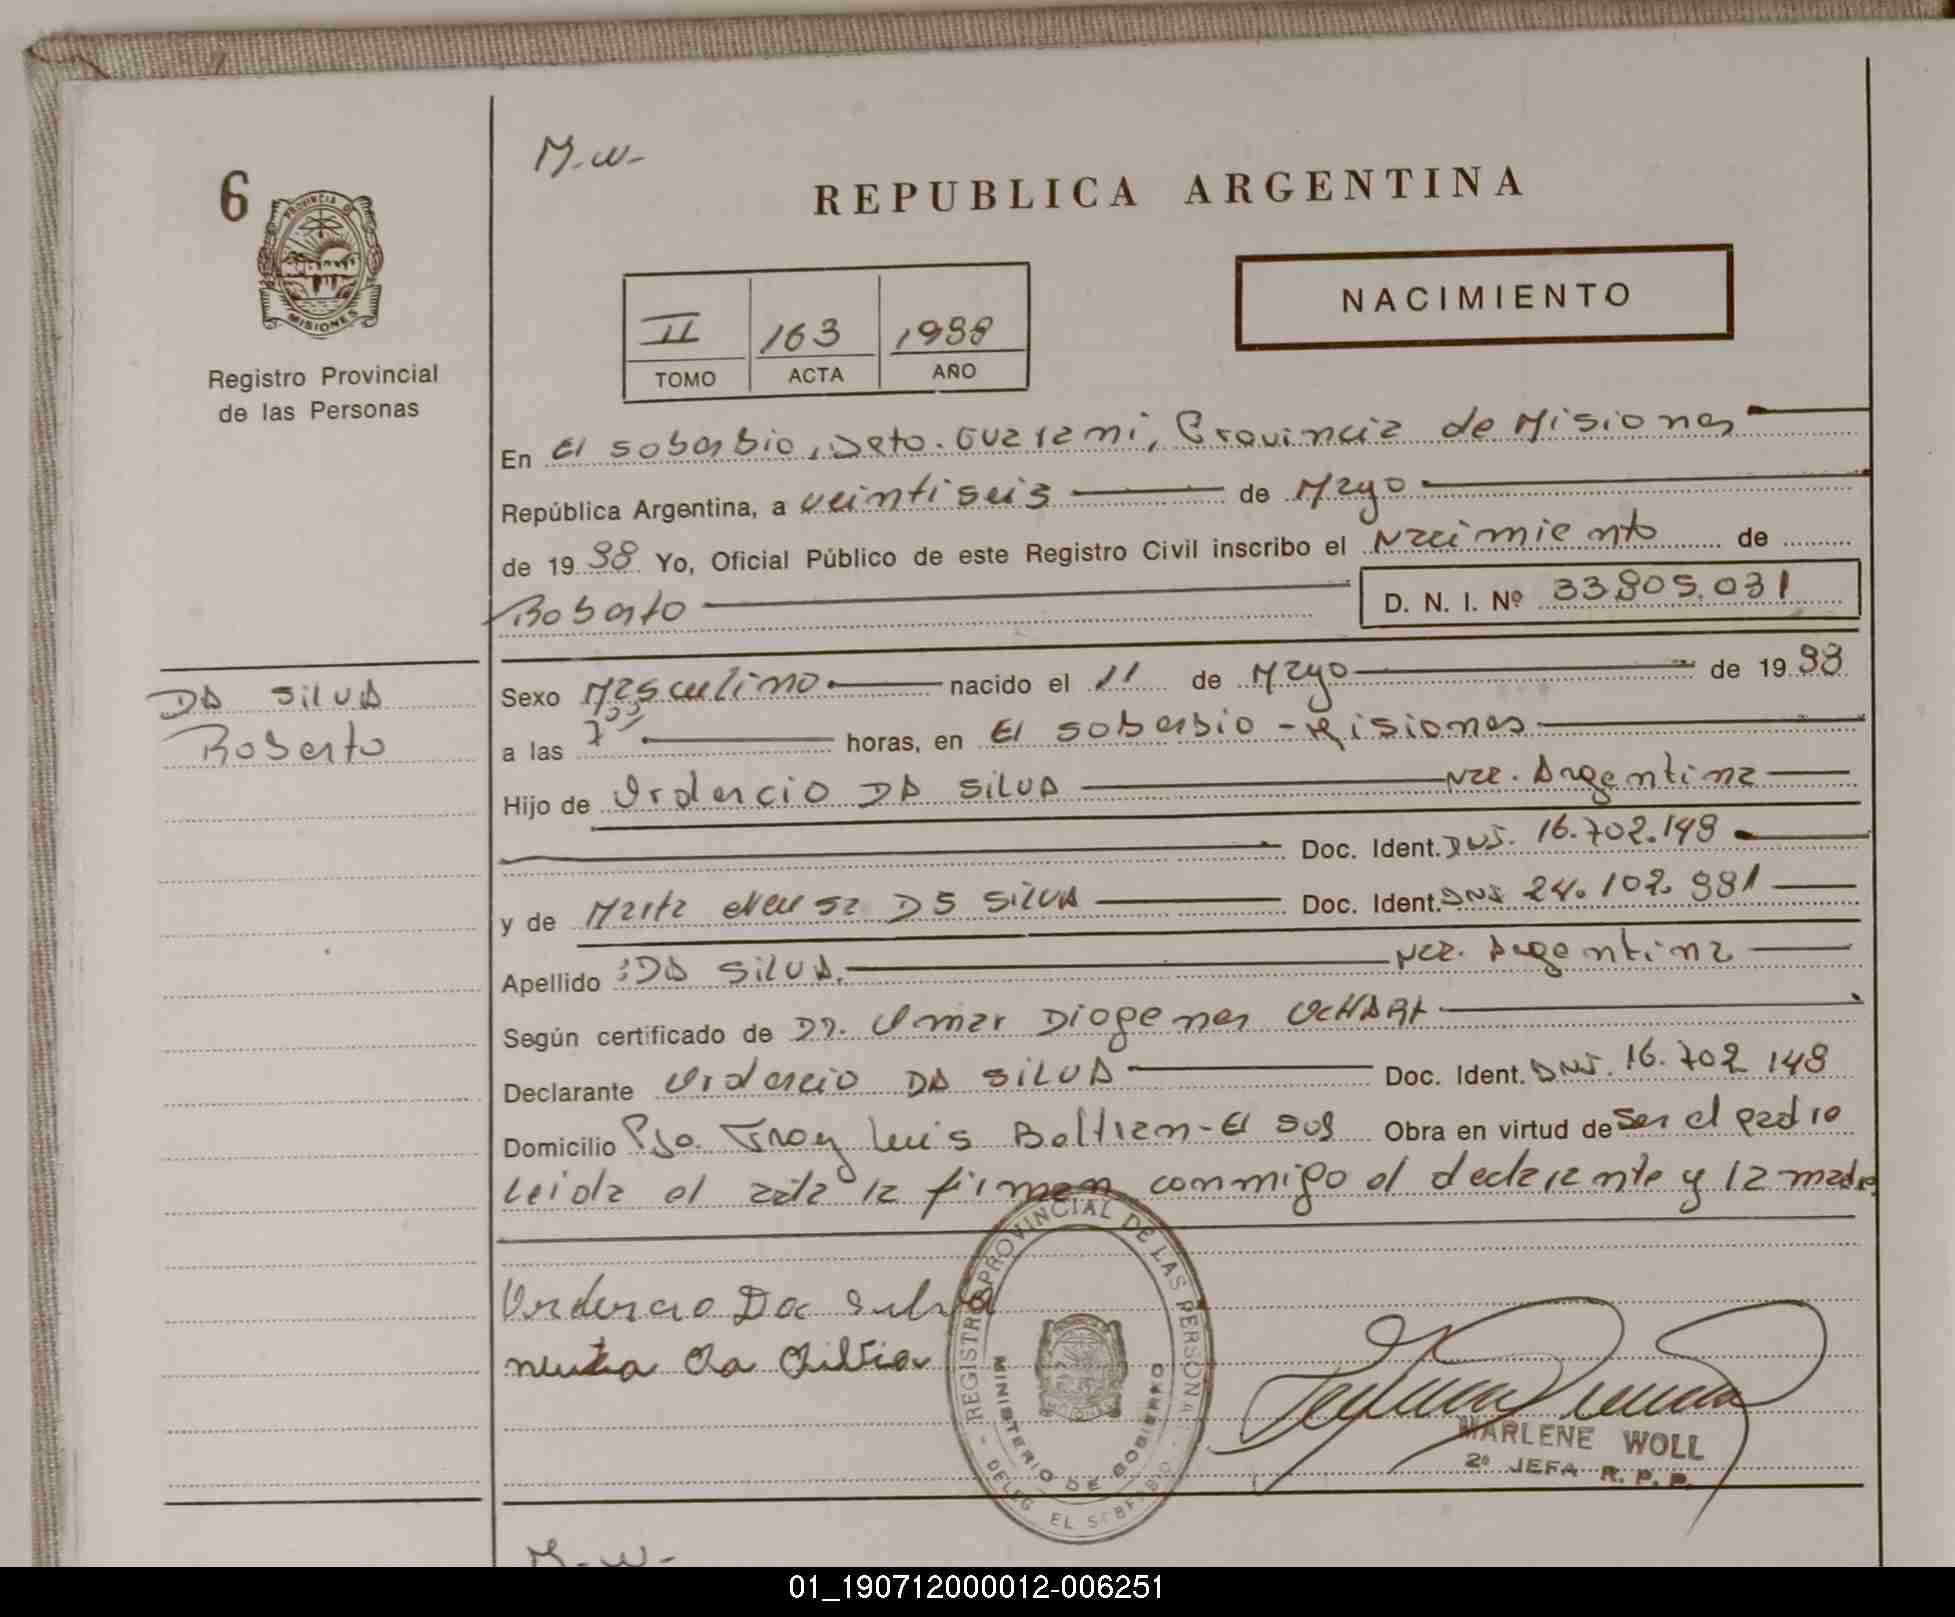 6
M.W-
REPUBLICA ARGENTINA
PROVINCIA DE
MISIONES
Registro Provincial
de las Personas
II 163 1988
TOMO ACTA AÑO
NACIMIENTO
En El soberbio, Dpto. Guarani, Provincia de Misiones
República Argentina, a veintiseis de Mayo
de 19 88 Yo, Oficial Público de este Registro Civil inscribo el Nacimiento de
Roberto D. N. I. Nº 33.805.031
DA SILVA
Roberto
Sexo Masculino nacido el 11 de Mayo de 19 88
a las 7 horas, en El soberbio - Misiones
Hijo de DA SILVA Nac. Argentina
Doc. Ident. DNI. 16.702.148
y de Marta Neusa DA SILVA Doc. Ident. DNI 24.102.881
Apellido :DA SILVA. Nac. Argentina
Según certificado de Dr. Omar Diogenes
Declarante DA SILVA Doc. Ident. DNI. 16.702 148
Domicilio Pjo. Fray Luis Beltran - El Sob Obra en virtud de ser el padre
Leida el acta la firman conmigo el declarante y la madre
Da Silva
neuza da Silva
REGISTRO PROVINCIAL DE LAS PERSONAS
MINISTERIO DE GOBIERNO
- DELEG. EL SOBERBIO -
MARLENE WOLL
2º JEFA R. P. P.
M.W-
01_190712000012-006251